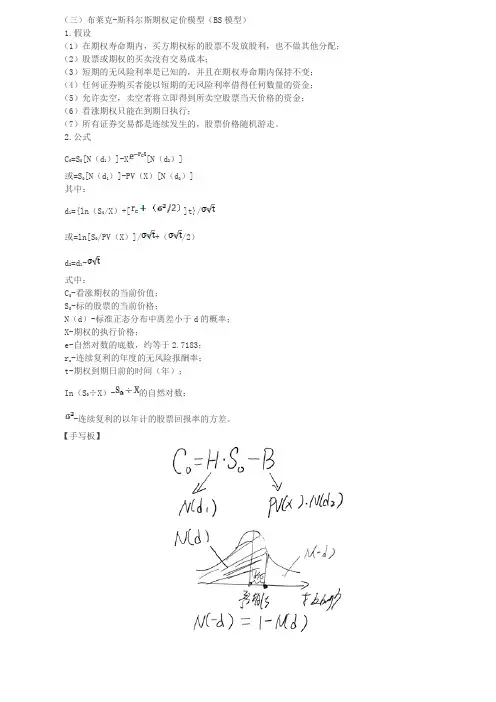 （三）布莱克-斯科尔斯期权定价模型（BS模型）
1.假设
（1）在期权寿命期内，买方期权标的股票不发放股利，也不做其他分配；
（2）股票或期权的买卖没有交易成本；
（3）短期的无风险利率是已知的，并且在期权寿命期内保持不变；
（4）任何证券购买者能以短期的无风险利率借得任何数量的资金；
（5）允许卖空，卖空者将立即得到所卖空股票当天价格的资金；
（6）看涨期权只能在到期日执行；
（7）所有证券交易都是连续发生的，股票价格随机游走。
2.公式
C₀=S₀[N（d₁）]-Xe^(-r_c t)[N（d₂）]
或=S₀[N（d₁）]-PV（X）[N（d₂）]
其中：
d₁={ln（S₀/X）+[r_c+（σ²/2）]t}/σ√t
或=ln[S₀/PV（X）]/σ√t+（σ√t/2）
d₂=d₁-σ√t
式中：
C₀-看涨期权的当前价值；
S₀-标的股票的当前价格；
N（d）-标准正态分布中离差小于d的概率；
X-期权的执行价格；
e-自然对数的底数，约等于2.7183；
r_c-连续复利的年度的无风险报酬率；
t-期权到期日前的时间（年）；
In（S₀÷X）-S₀÷X的自然对数；
σ²-连续复利的以年计的股票回报率的方差。
【手写板】
C₀=H·S₀-B
N(d₁) PV(X)·N(d₂)
N(d) N(-d)
N(-d)=1-N(d)